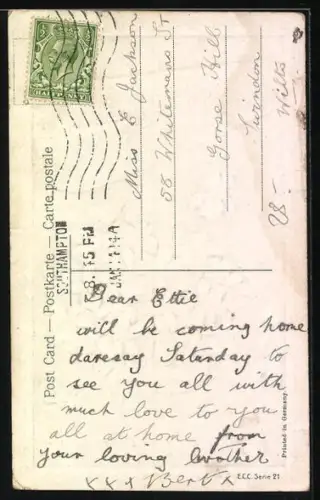 Post Card — Postkarte — Carte postale
SOUTHAMPTON
8.15 PM
JAN 11 14A
Miss E Jackson
58 Whitemans St
Gorse Hill
Swindon
Wilts
Dear Ettie
will be coming home
daresay Saturday to
see you all with
much love to you
all at home from
your loving brother
xxx Bert x
Printed in Germany
E.C.C. Serie 21